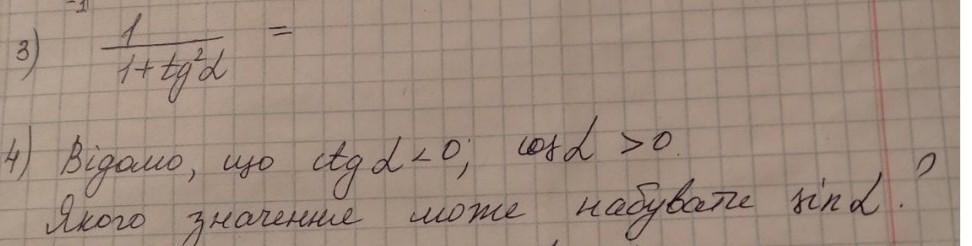 -1
3) 1/(1+tg²α) =
4) Відомо, що ctg α < 0; cos α > 0.
Якого значення може набувати sin α?